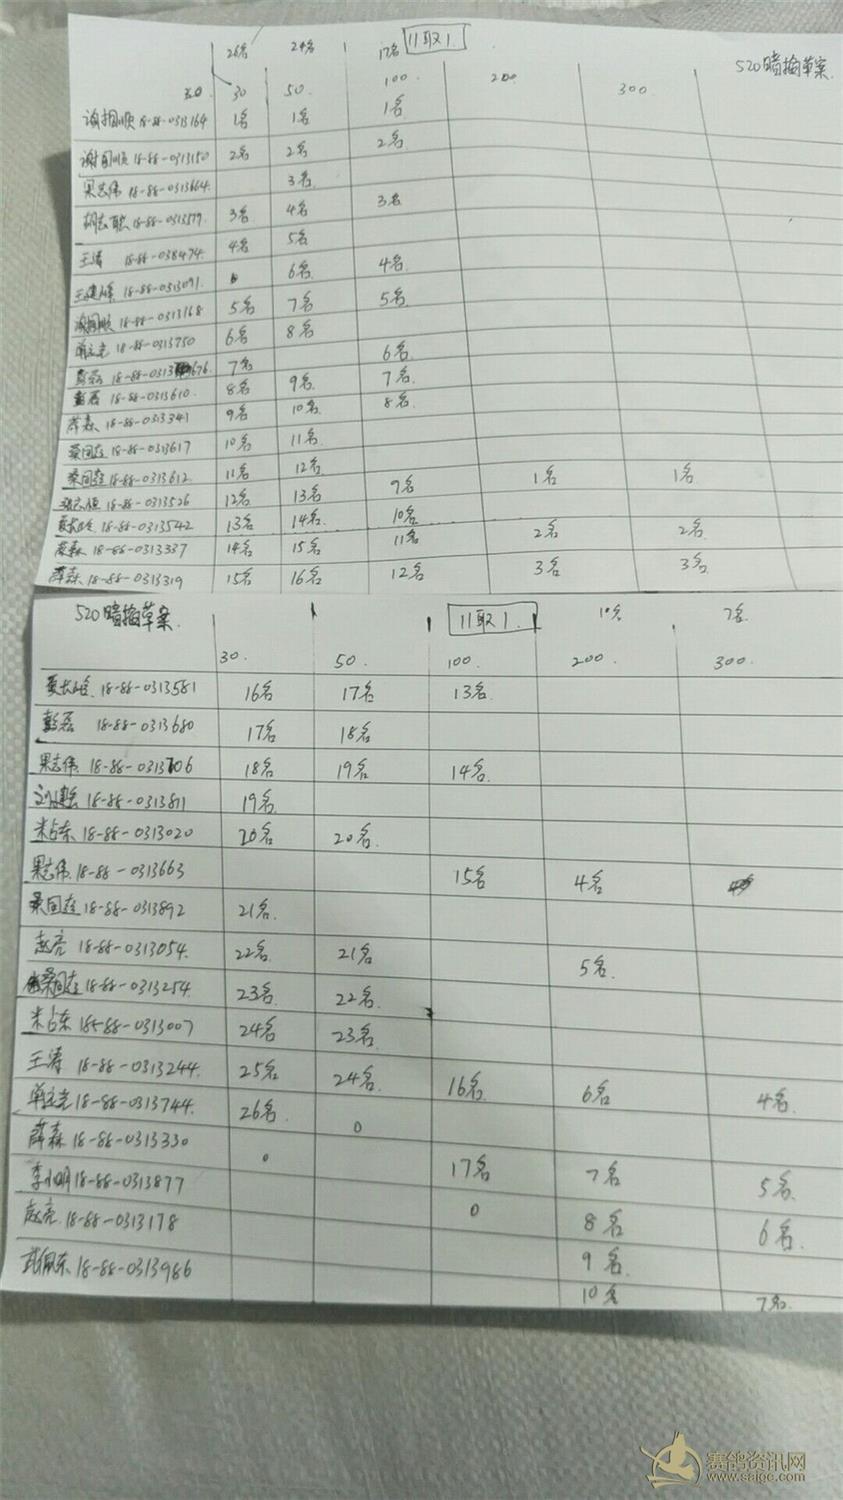 26名 24名 17名 11取1.
520暗插草案.
30. 30 50. 100. 200 300.
谢相顺 18-88-0313164 1名 1名 1名
谢相顺 18-88-0313150 2名 2名 2名
果志伟 18-88-0313664 3名
18-88-0313579 3名 4名 3名
王涛 18-88-038474. 4名 5名
18-88-0313091 6名 4名
谢相顺 18-88-0313168 5名 7名 5名
18-88-0313750 6名 8名
彭磊 18-88-0313676 7名 6名
彭磊 18-88-0313610 8名 9名 7名
薛森 18-88-0313341 9名 10名 8名
18-88-0313617 10名 11名
18-88-0313612 11名 12名 9名 1名 1名
18-88-0313526 12名 13名 10名
18-88-0313542 13名 14名 11名 2名 2名
薛森 18-88-0313337 14名 15名
薛森 18-88-0313319 15名 16名 12名 3名 3名
520暗插草案. 11取1. 10名 7名
30. 50. 100. 200 300.
18-88-0313581 16名 17名 13名
彭磊 18-88-0313680 17名 18名
果志伟 18-88-0313706 18名 19名 14名
18-88-0313811 19名
米占东 18-88-0313020 20名 20名
果志伟 18-88-0313663 15名 4名
18-88-0313892 21名
赵亮 18-88-0313054. 22名 21名 5名
18-88-0313254 23名 22名
米占东 18-88-0313007 24名 23名
王涛 18-88-0313244. 25名 24名 16名 6名 4名
18-88-0313744. 26名 0
薛森 18-88-0313330 0 17名 7名 5名
李小明 18-88-0313877 0 8名 6名
赵亮. 18-88-0313178 9名
武佩东 18-88-0313986 10名 7名
赛鸽资讯网
www.saige.com